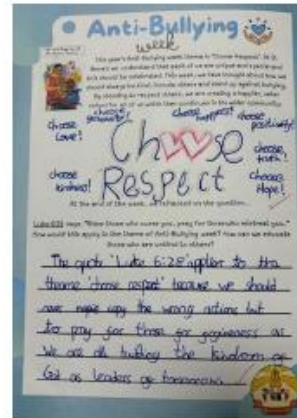 Anti-Bullying
week
This year's Anti-Bullying week theme is "Choose Respect". At St
we understand that each of us are unique and special and
this should be celebrated. This week, we have thought about how we
should always be kind, include others and stand up against bullying.
By deciding to respect others, we are creating a
respect for all of us within
choose generosity!
choose happiness!
choose Love!
choose positivity!
Choose
Respect
choose truth!
choose kindness!
choose Hope!
At the end of the week, we reflected on the question...
Luke 6:28 says: "Bless those who curse you, pray for those who mistreat you."
How would this apply to the theme of Anti-Bullying week? How can we educate
those who are unkind to others?
The quote 'Luke 6:28' applies to the
theme 'choose respect' because we should
never copy the wrong actions but
to pray for those for forgiveness as
We are all building the kindom of
God as leaders of tomorrow